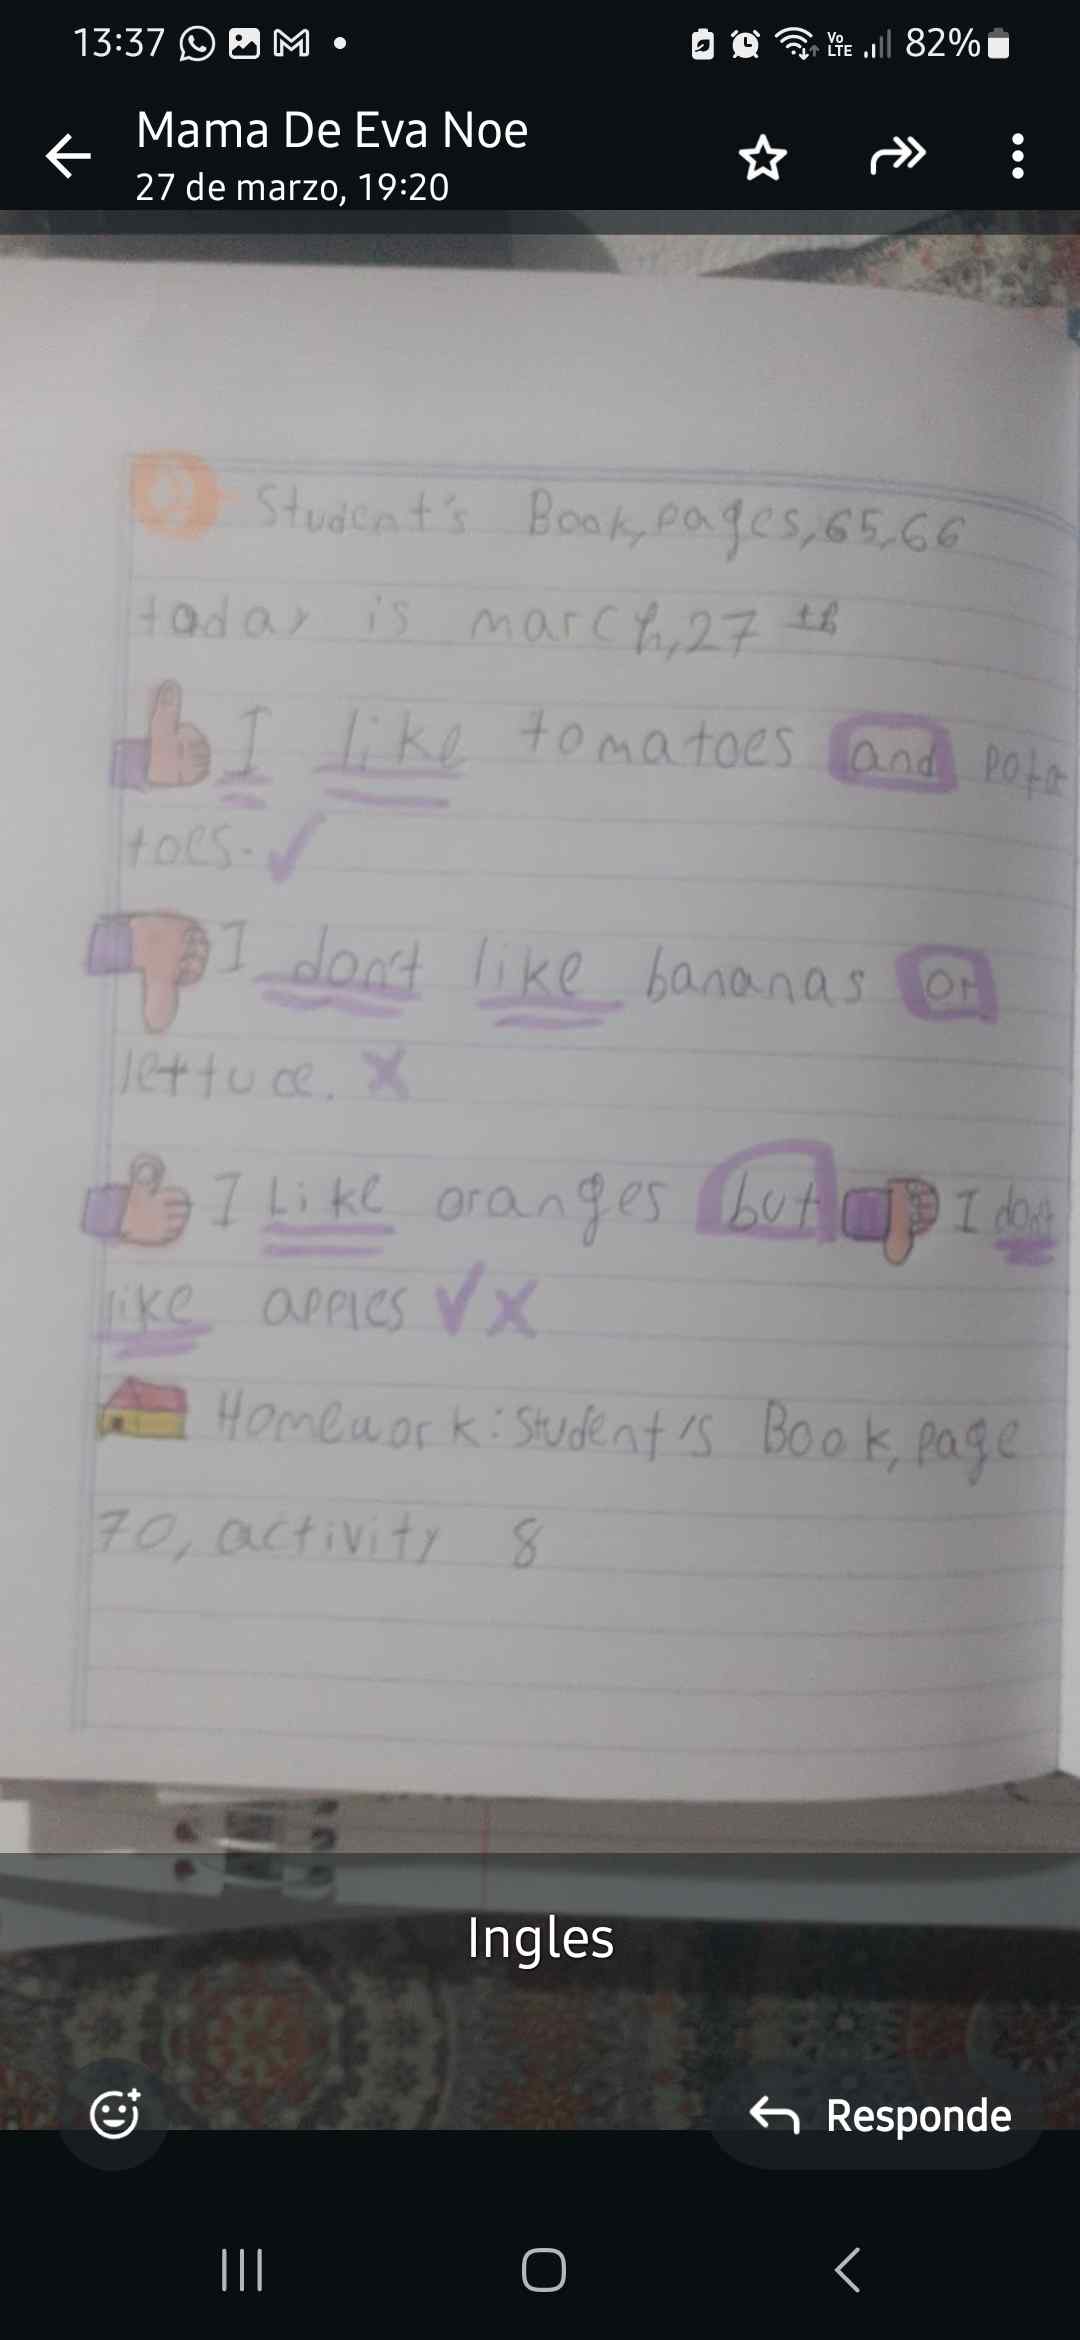 13:37
Vo LTE 82%
Mama De Eva Noe
27 de marzo, 19:20
Student's Book, pages, 65, 66
today is march, 27 th
I like tomatoes and pota
toes.
I don't like bananas or
lettuce. X
I Like oranges but I don't
like apples X
Homework: Student's Book, page
70, activity 8
Ingles
Responde